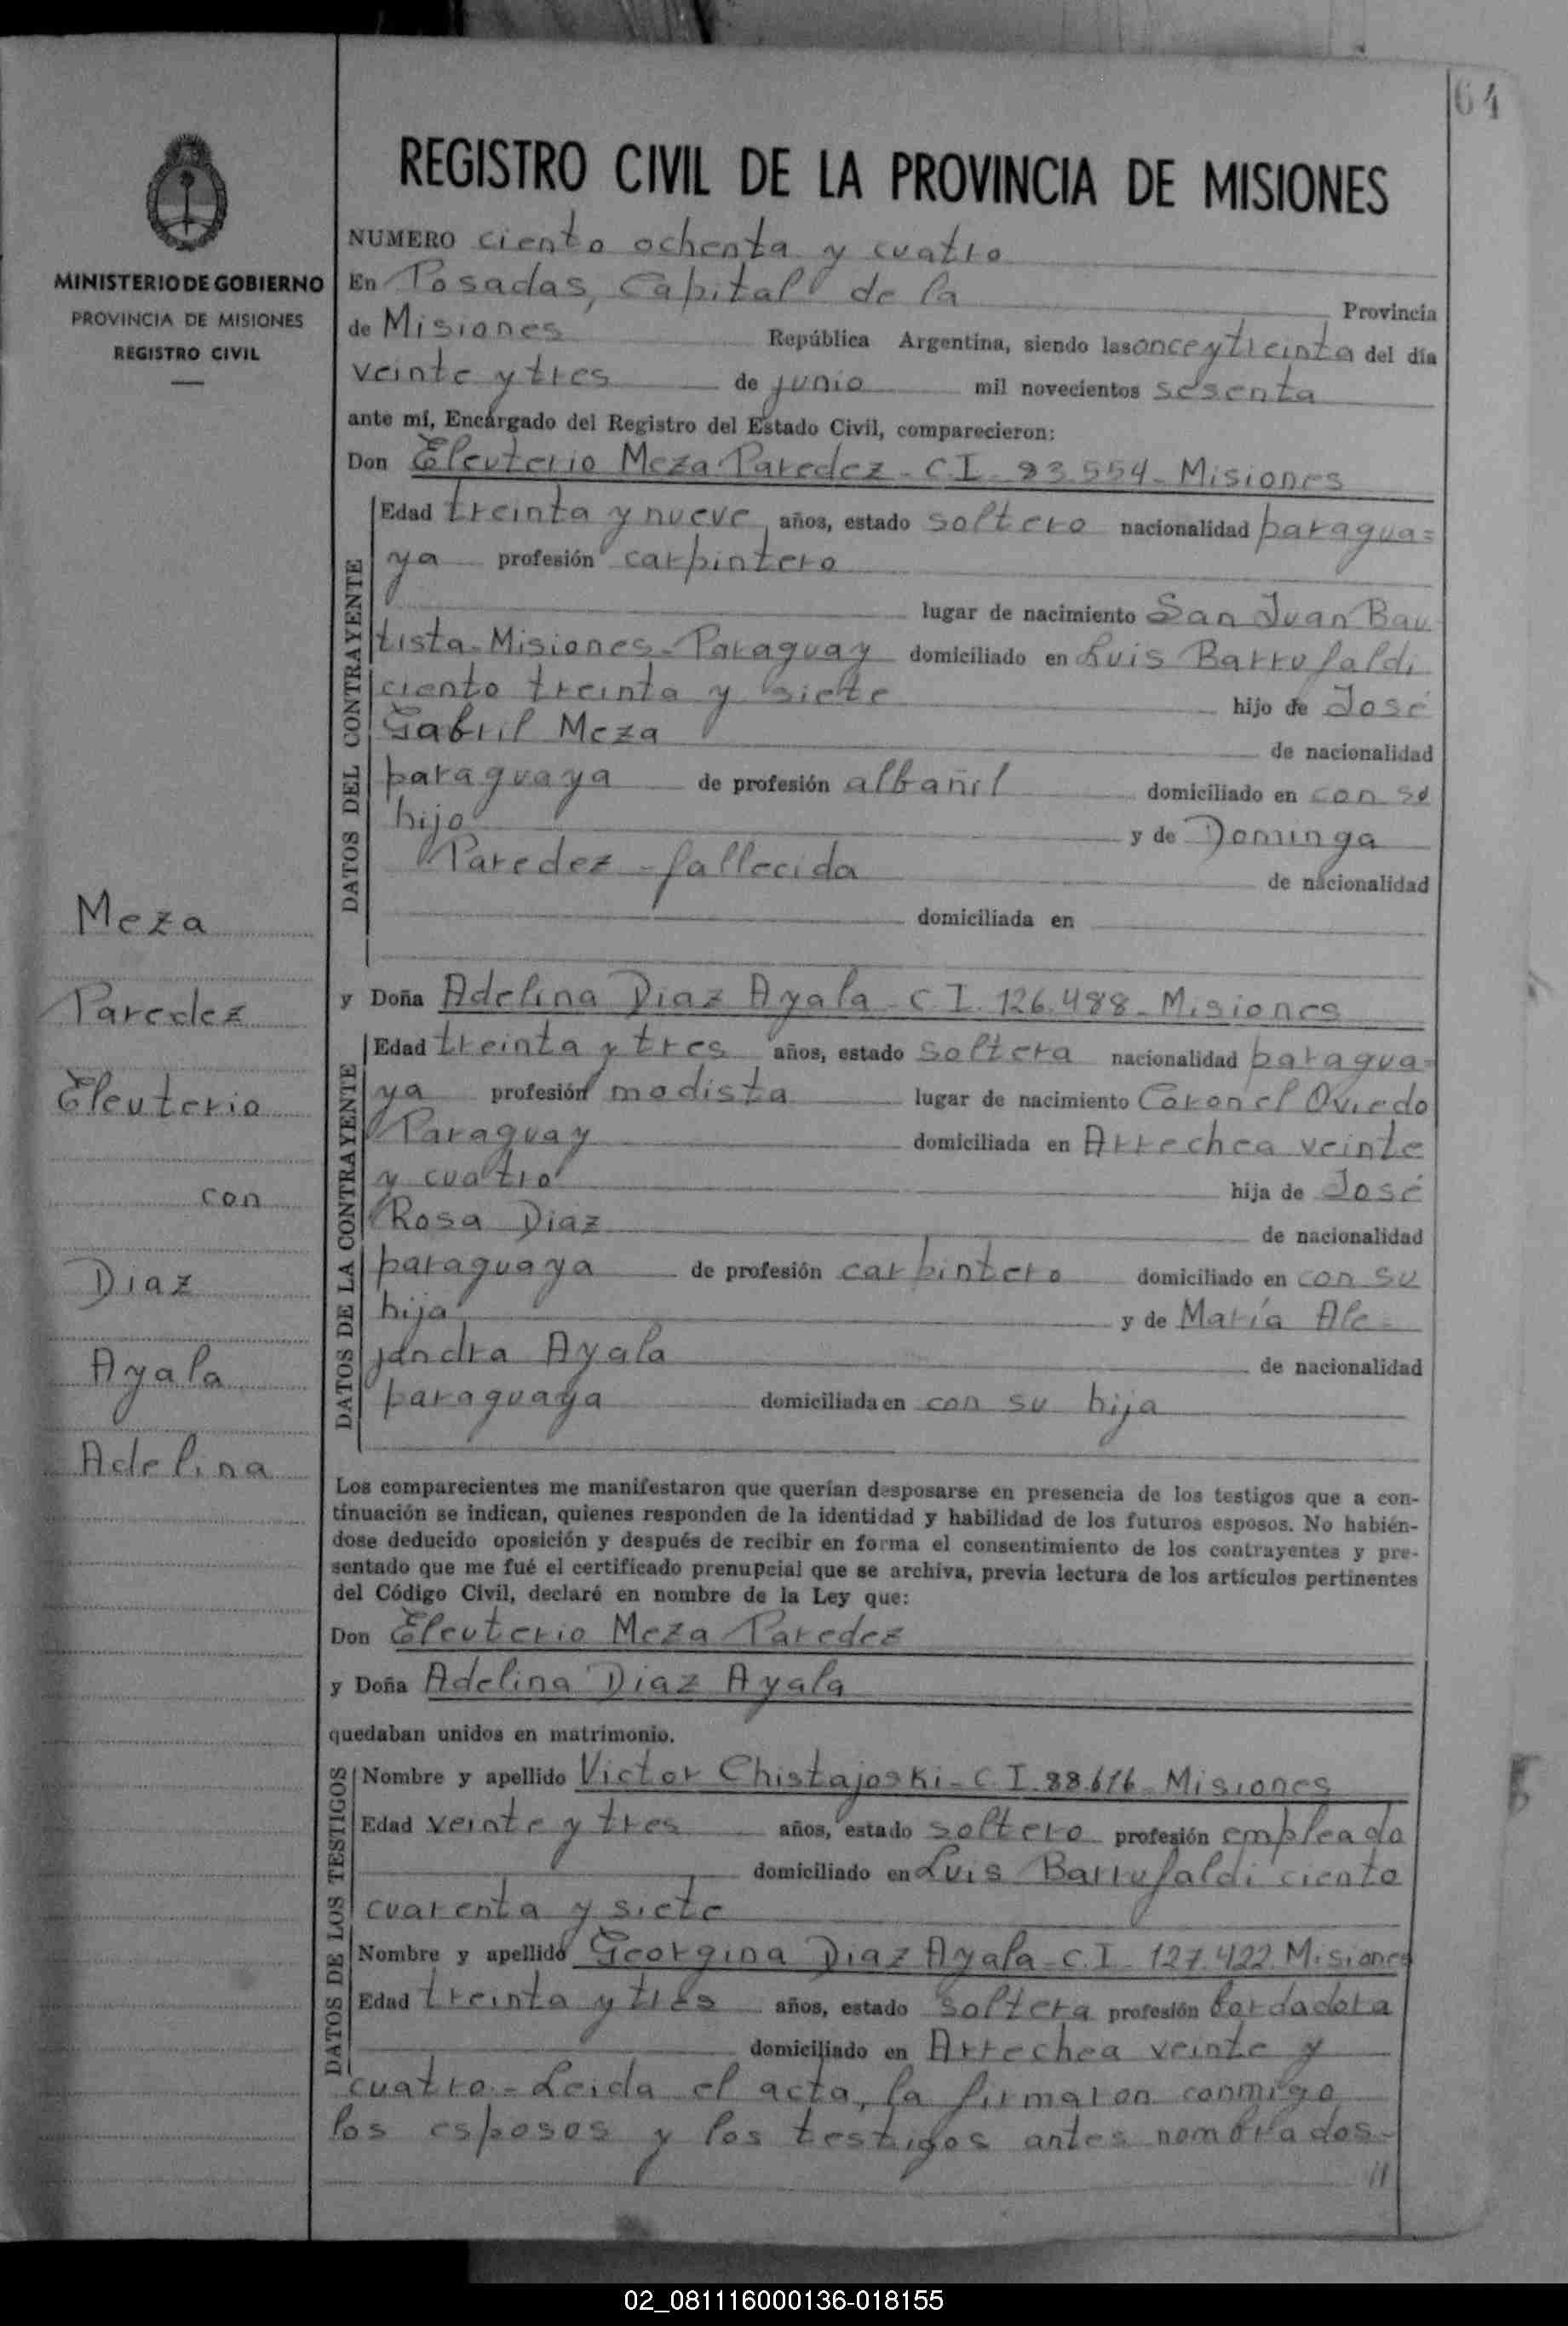 64
MINISTERIO DE GOBIERNO
PROVINCIA DE MISIONES
REGISTRO CIVIL
Meza
Paredez
Eleuterio
con
Diaz
Ayala
Adelina
REGISTRO CIVIL DE LA PROVINCIA DE MISIONES
NUMERO ciento ochenta y cuatro
En Posadas, Capital de la Provincia
de Misiones República Argentina, siendo las once y treinta del día
veinte y tres de junio mil novecientos sesenta
ante mí, Encargado del Registro del Estado Civil, comparecieron:
Don Eleuterio Meza Paredez - C.I. 93.554 - Misiones
DATOS DEL CONTRAYENTE
Edad treinta y nueve años, estado soltero nacionalidad paragua=
ya profesión carpintero
lugar de nacimiento San Juan Bau
tista - Misiones - Paraguay domiciliado en Luis Barrufaldi
ciento treinta y siete hijo de José
Gabril Meza de nacionalidad
paraguaya de profesión albañil domiciliado en con su
hijo y de Dominga
Paredez - fallecida de nacionalidad
domiciliada en
y Doña Adelina Diaz Ayala - C.I. 126.488 - Misiones
DATOS DE LA CONTRAYENTE
Edad treinta y tres años, estado soltera nacionalidad paragua=
ya profesión modista lugar de nacimiento Coronel Oviedo
Paraguay domiciliada en Arrechea veinte
y cuatro hija de José
Rosa Diaz de nacionalidad
paraguaya de profesión carpintero domiciliado en con su
hija y de María Ale=
jandra Ayala de nacionalidad
paraguaya domiciliada en con su hija
Los comparecientes me manifestaron que querían desposarse en presencia de los testigos que a con-
tinuación se indican, quienes responden de la identidad y habilidad de los futuros esposos. No habién-
dose deducido oposición y después de recibir en forma el consentimiento de los contrayentes y pre-
sentado que me fué el certificado prenupcial que se archiva, previa lectura de los artículos pertinentes
del Código Civil, declaré en nombre de la Ley que:
Don Eleuterio Meza Paredez
y Doña Adelina Diaz Ayala
quedaban unidos en matrimonio.
DATOS DE LOS TESTIGOS
Nombre y apellido Victor Chistajoski - C.I. 88.616 - Misiones
Edad veinte y tres años, estado soltero profesión empleado
domiciliado en Luis Barrufaldi ciento
cuarenta y siete
Nombre y apellido Georgina Diaz Ayala - C.I. 127.422 Misiones
Edad treinta y tres años, estado soltera profesión bordadora
domiciliado en Arrechea veinte y
cuatro - Leida el acta, la firmaron conmigo
los esposos y los testigos antes nombrados -
//
02_081116000136-018155